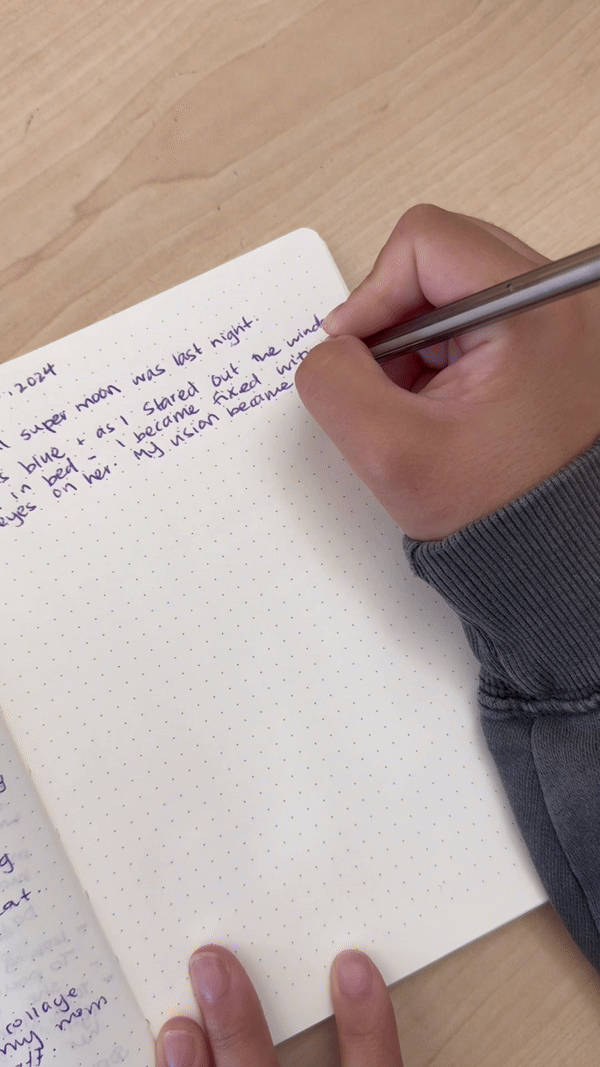 , 2024
super moon was last night.
s blue + as I stared out the wind
in bed - I became fixed
eyes on her. My vision became
g
at.
collage
my mom